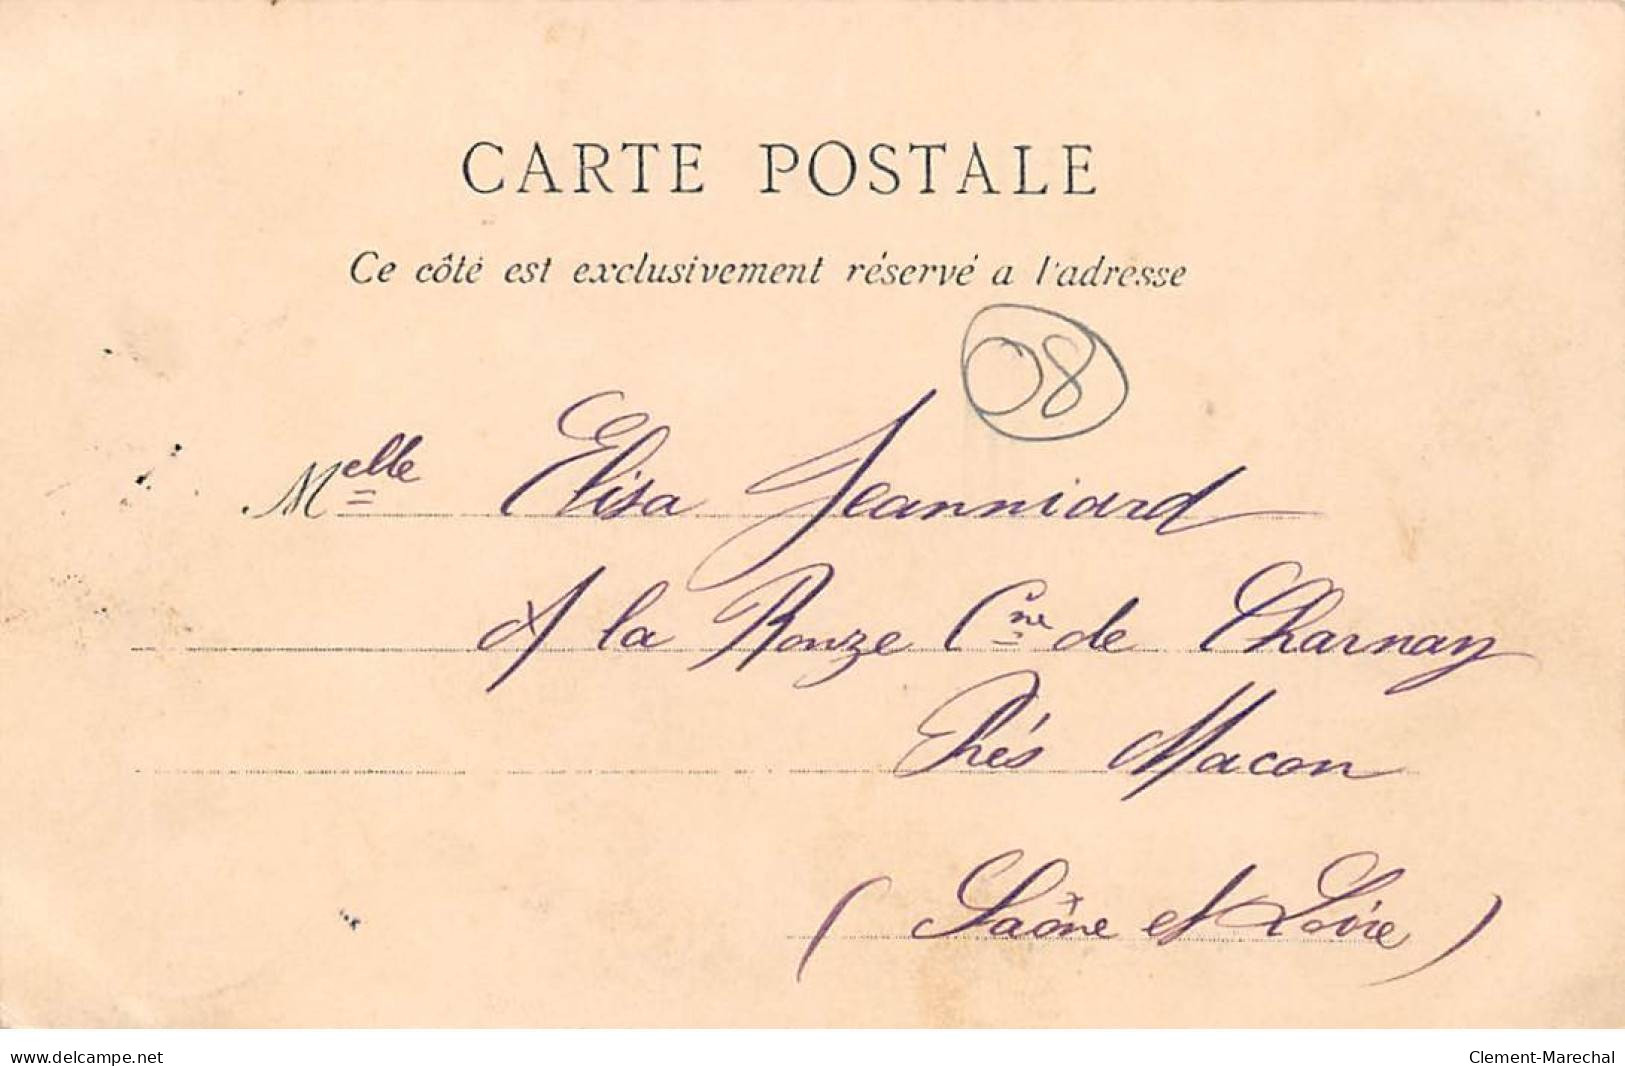 CARTE POSTALE
Ce côté est exclusivement réservé a l'adresse
08
Melle Elisa Jeanniard
A la Ronze Cne de Charnay
Près Macon
(Saône et Loire)
www.delcampe.net
Clement-Marechal